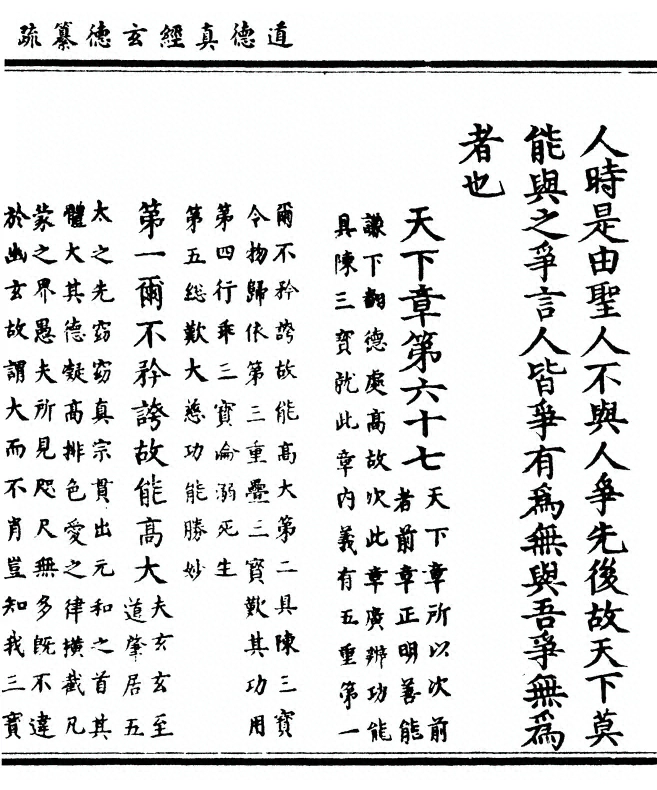 道德真經玄德纂疏
人時是由聖人不與人爭先後故天下莫
能與之爭言人皆爭有爲無與吾爭無爲
者也
天下章第六十七
天下章所以次前
者前章正明善能
謙下翻德處高故次此章廣辨功能
具陳三寶就此章內義有五重第一
爾不矜誇故能高大第二具陳三寶
令物歸依第三重疊三寶歎其功用
第四行乖三寶淪溺死生
第五總歎大慈功能勝妙
第一爾不矜誇故能高大
夫玄玄至
道肇居五
太之先窈窈真宗貫出元和之首其
體大其德凝高排色愛之律橫截凡
蒙之界愚夫所見咫尺無多既不違
於幽玄故謂大而不肖豈知我三寶